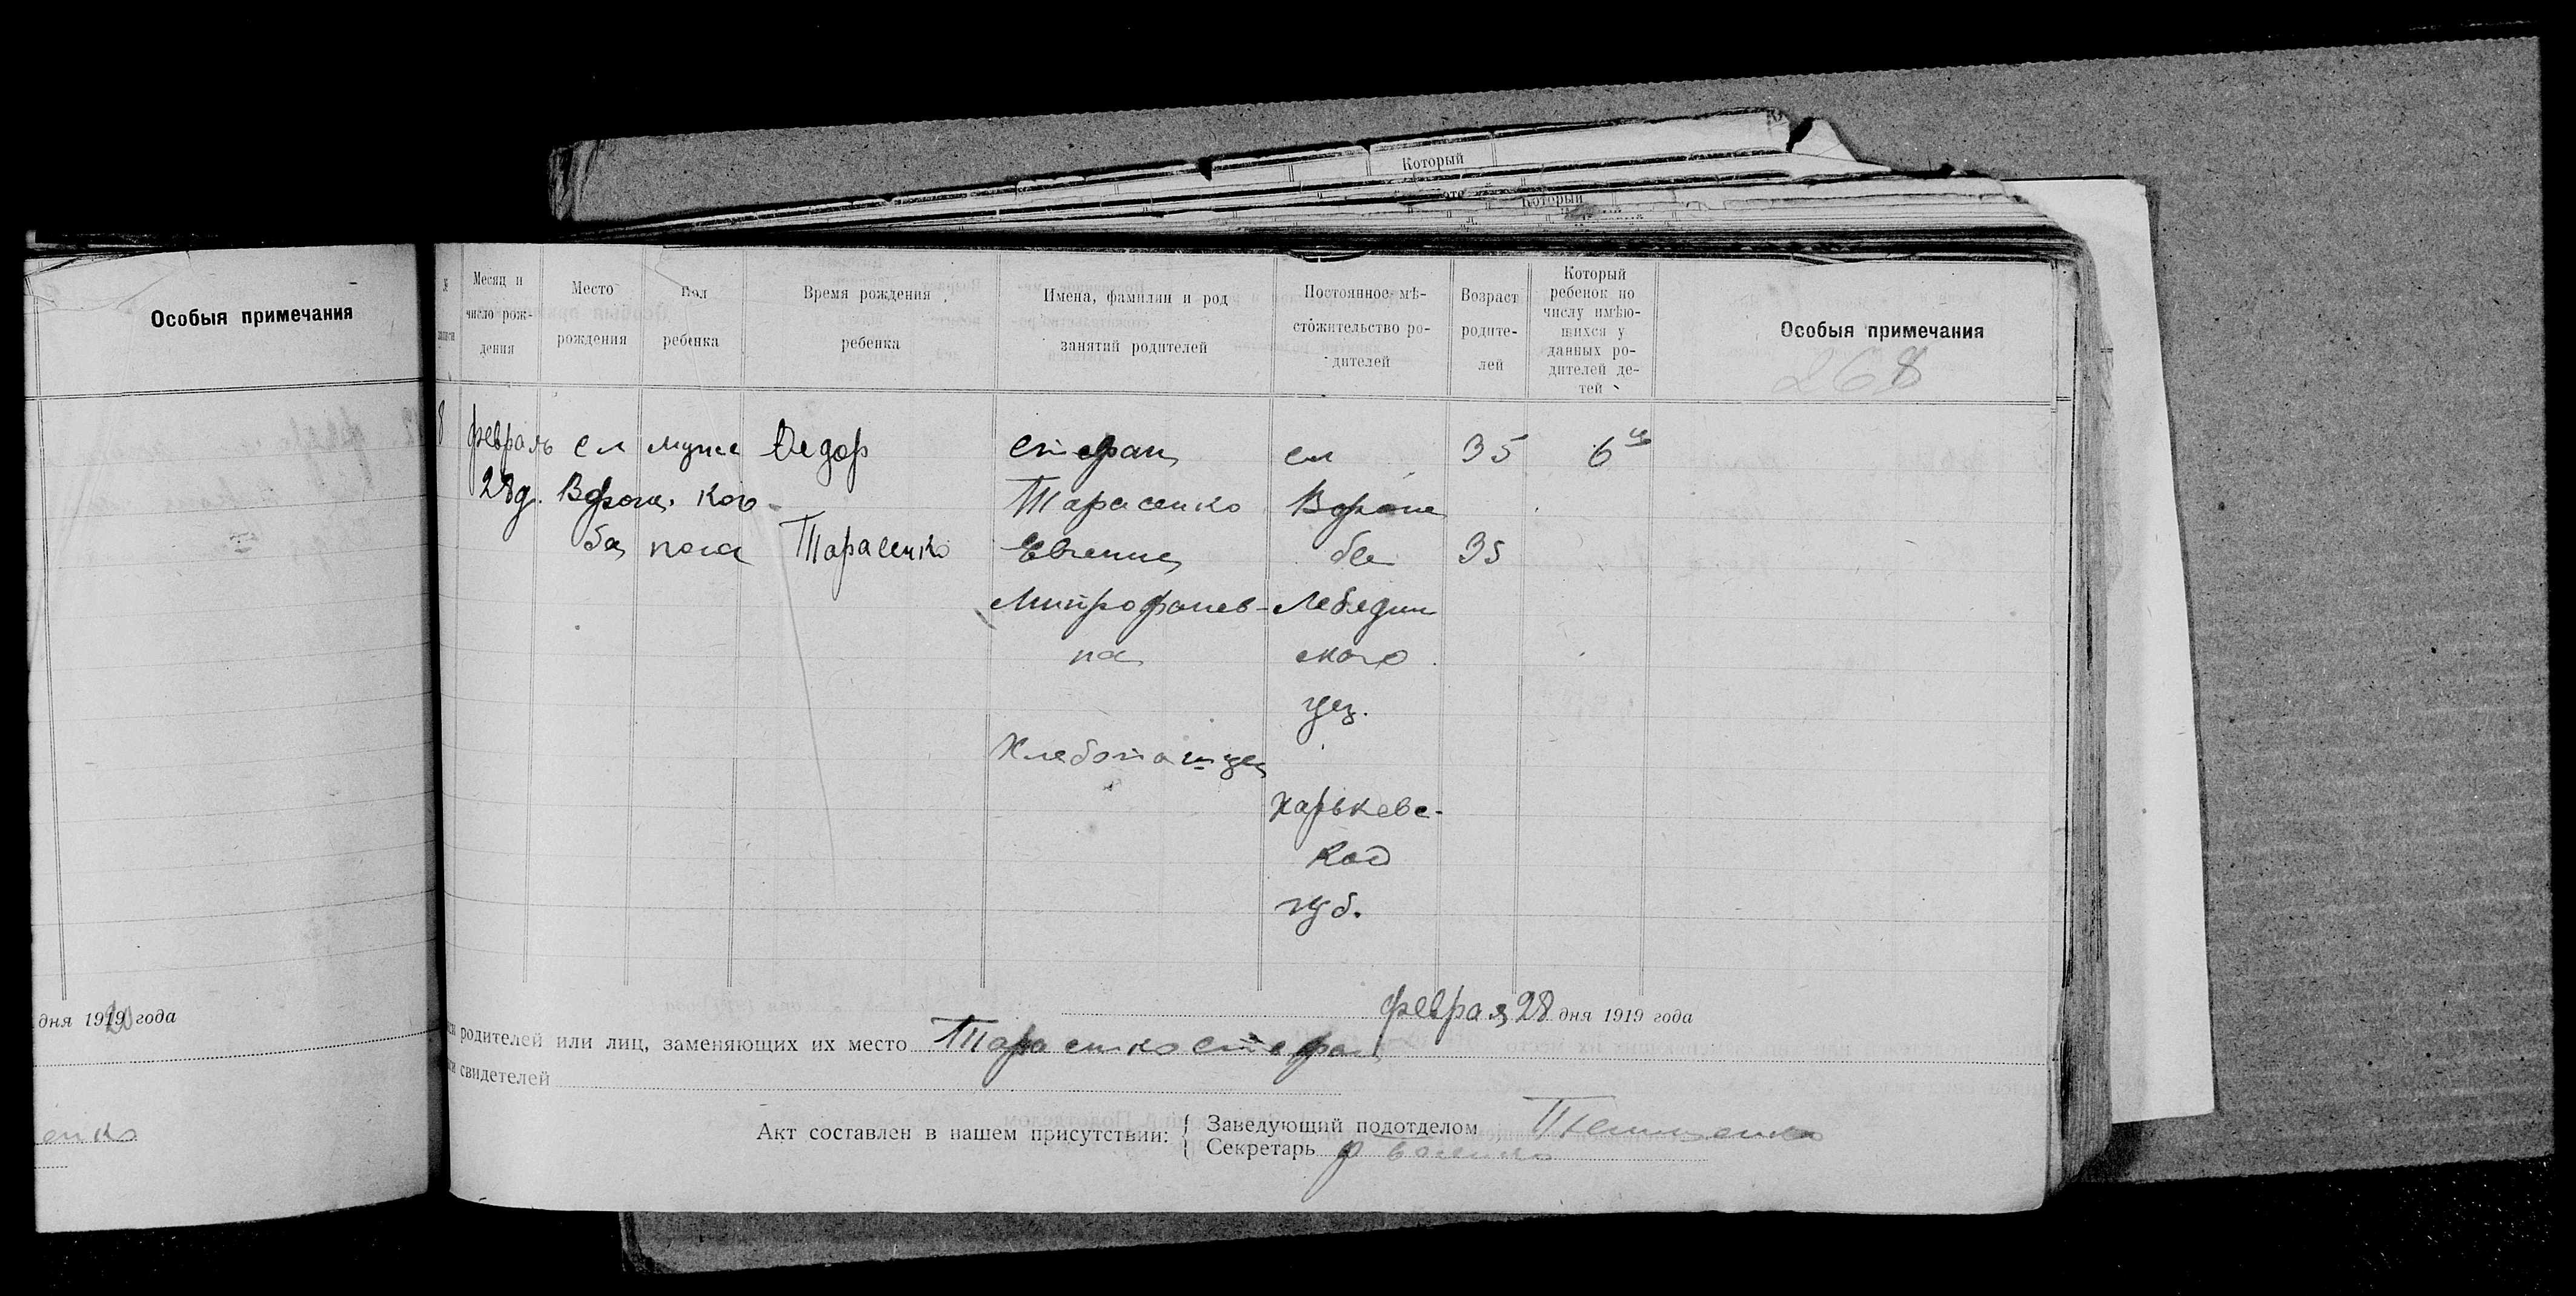 Который
Который
Особыя примечания
дня 1919 года
енко
Месяц и число рож-дения
Место рождения
Пол ребенка
Время рождения ребенка
Имена, фамилии и род занятий родителей
Постоянное мѣ-стожительство ро-дителей
Возраст родите-лей
Который ребенок по числу имѣю-щихся у данных ро-дителей де-тей
Особыя примечания
268
8 февраль сл муже Ѳедор Стефан сл 35 6й
28д. Ворож. ког Тарасенко Вороже
ба пола Тарасенко Евгения ба 35
Митрофанов- Лебедин
на ского
уез.
Хлебопашец
Харьковс-
кой
губ.
Февраля 28 дня 1919 года
родителей или лиц, заменяющих их место Тарасенко Стефан
свидетелей
Акт составлен в нашем присутствии:
Заведующий подотделом
Секретарь